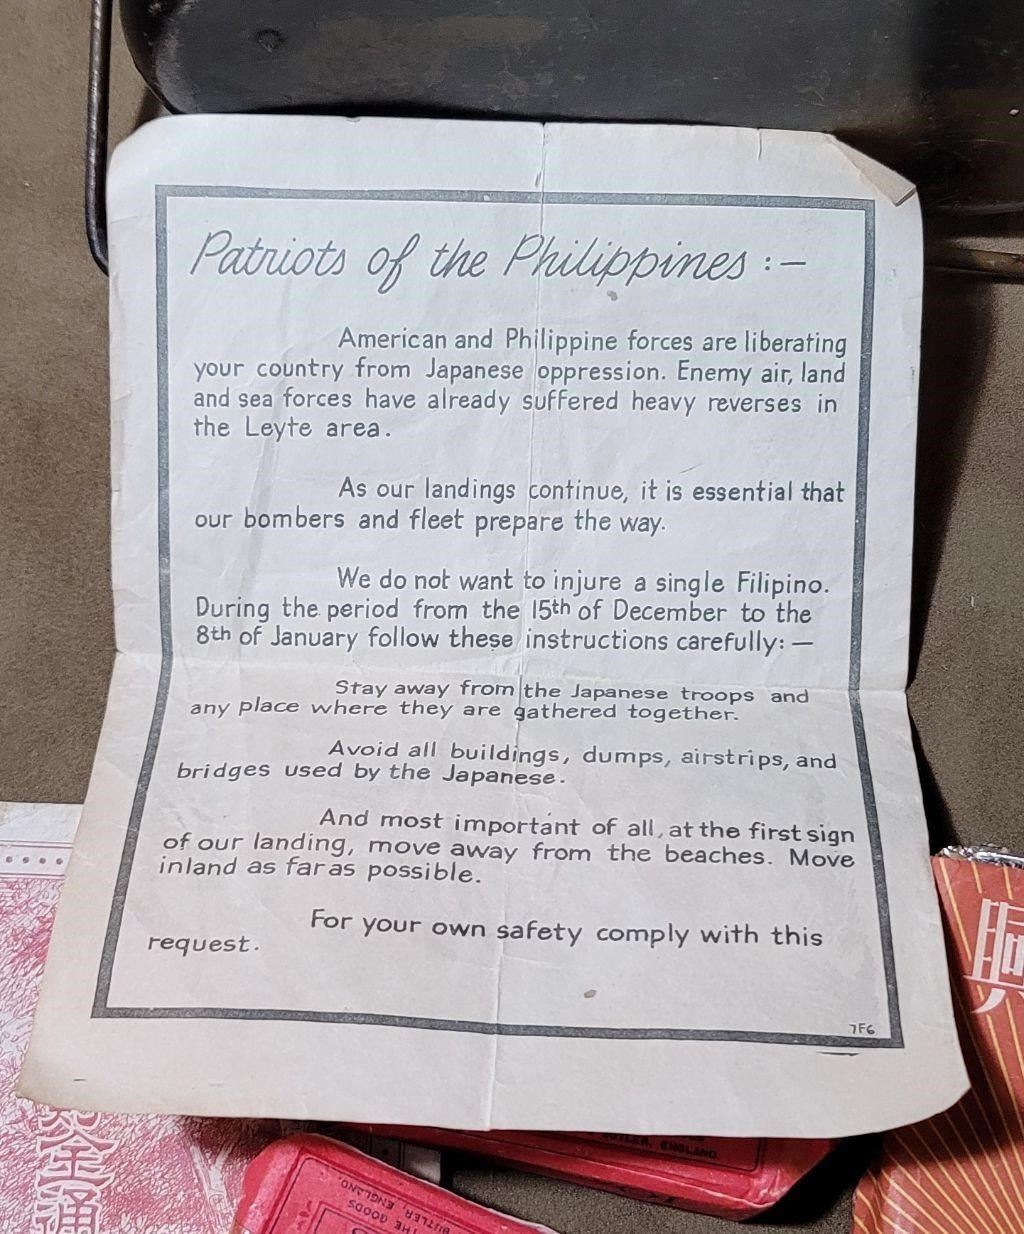 Patriots of the Philippines :—
American and Philippine forces are liberating
your country from Japanese oppression. Enemy air, land
and sea forces have already suffered heavy reverses in
the Leyte area.
As our landings continue, it is essential that
our bombers and fleet prepare the way.
We do not want to injure a single Filipino.
During the period from the 15th of December to the
8th of January follow these instructions carefully: —
Stay away from the Japanese troops and
any place where they are gathered together.
Avoid all buildings, dumps, airstrips, and
bridges used by the Japanese.
And most important of all, at the first sign
of our landing, move away from the beaches. Move
inland as far as possible.
For your own safety comply with this
request.
7F6
BUTLER, ENGLAND.
THE GOODS
BUTLER, ENGLAND.